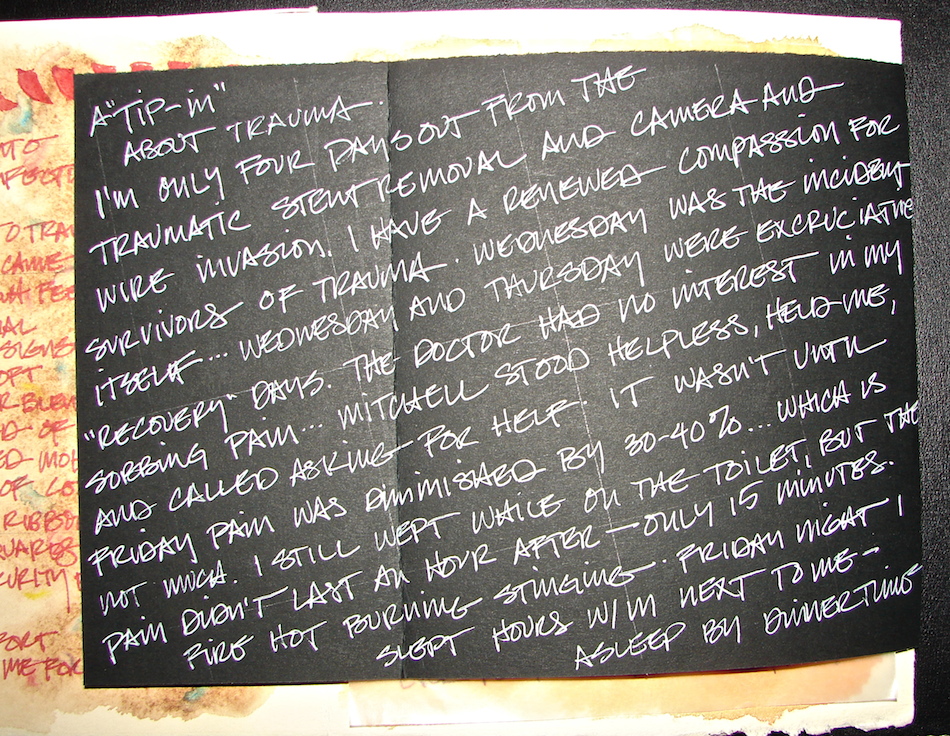 A "TIP-IN"
ABOUT TRAUMA.
I'M ONLY FOUR DAYS OUT FROM THE
TRAUMATIC STENT REMOVAL AND CAMERA AND
WIRE INVASION. I HAVE A RENEWED COMPASSION FOR
SURVIVORS OF TRAUMA. WEDNESDAY WAS THE INCIDENT
ITSELF... WEDNESDAY AND THURSDAY WERE EXCRUCIATING
"RECOVERY" DAYS. THE DOCTOR HAD NO INTEREST IN MY
SOBBING PAIN... MITCHELL STOOD HELPLESS, HELD ME,
AND CALLED ASKING FOR HELP. IT WASN'T UNTIL
FRIDAY PAIN WAS DIMINISHED BY 30-40%... WHICH IS
NOT MUCH. I STILL WEPT WHILE ON THE TOILET, BUT THE
PAIN DIDN'T LAST AN HOUR AFTER - ONLY 15 MINUTES.
FIRE HOT BURNING STINGING. FRIDAY NIGHT I
SLEPT HOURS W/M NEXT TO ME -
ASLEEP BY DINNERTIME
CAME
OF
RIBBO
ME FOR